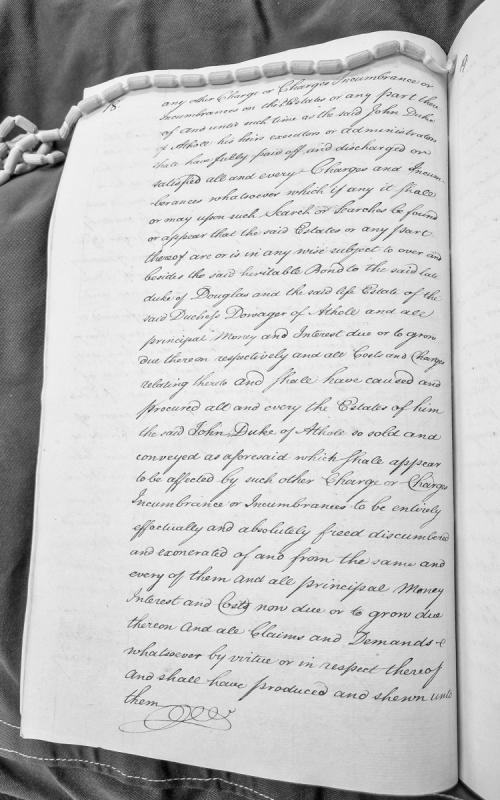 18.
any other Charge or Charges Incumbrance or
Incumbrances on the Estates or any part thereof
of and until such time as the said John Duke
of Athole his heirs executors or administrators
shall have fully paid off and discharged or
satisfied all and every Charges and Incum-
-brances whatsoever which if any it shall
or may upon such Search or Searches be found
or appear that the said Estates or any part
thereof are or is in any wise subject to over and
besides the said heritable Bond to the said late
duke of Douglas and the said life Estate of the
said Duchess Dowager of Athole and all
principal Money and Interest due or to grow
due thereon respectively and all Costs and Charges
relating thereto and shall have caused and
procured all and every the Estates of him
the said John Duke of Athole so sold and
conveyed as aforesaid which shall appear
to be affected by such other Charge or Charges
Incumbrance or Incumbrances to be entirely
effectually and absolutely freed discumbered
and exonerated of and from the same and
every of them and all principal Money
Interest and Costs now due or to grow due
thereon and all Claims and Demands
whatsoever by virtue or in respect thereof
and shall have produced and shewn unto
them